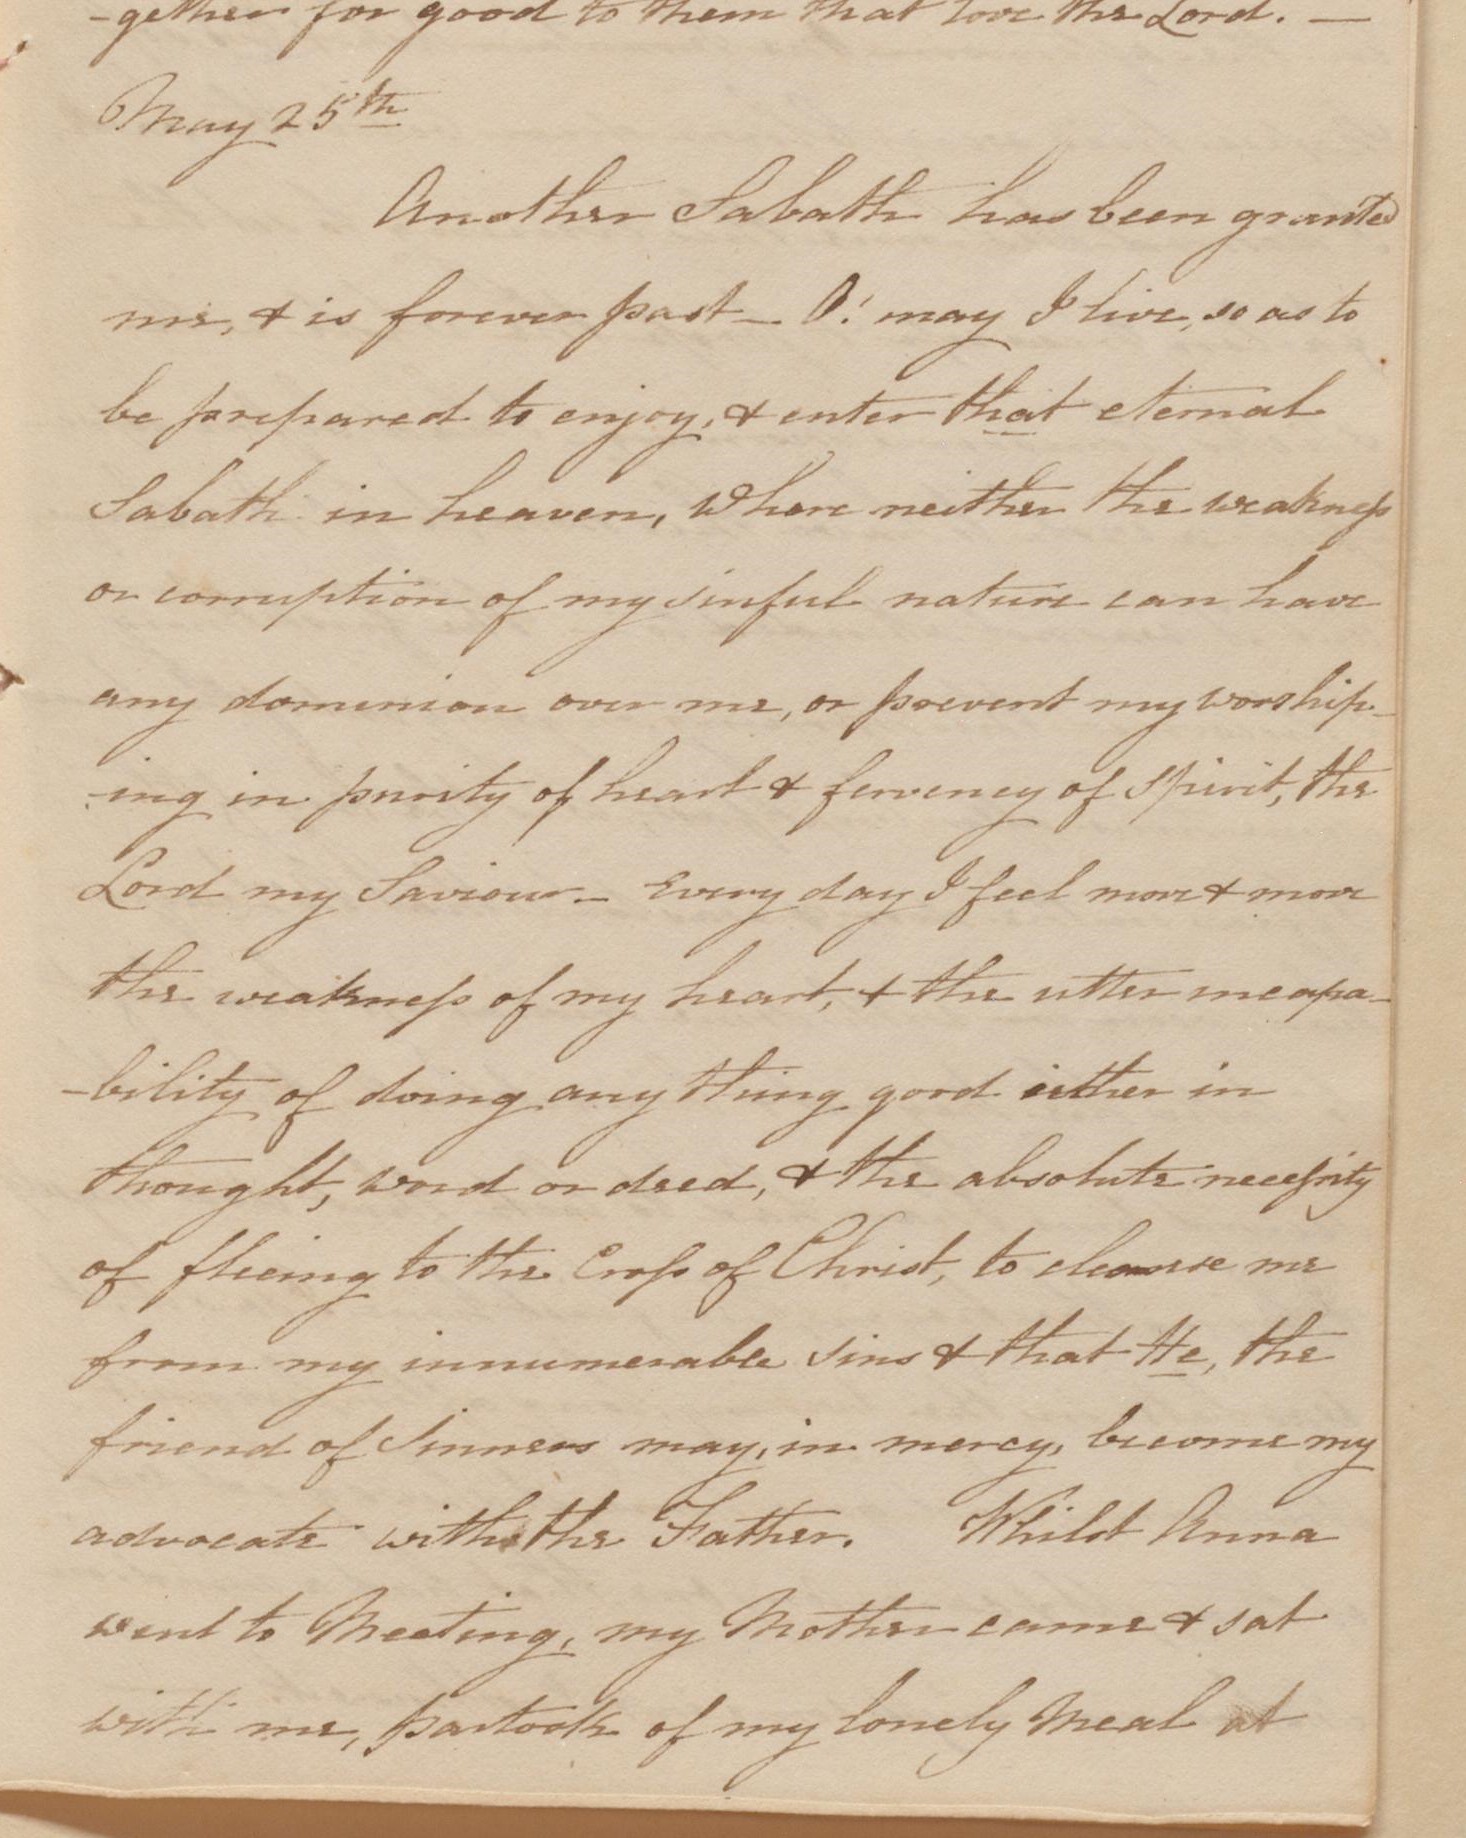 -gether for good to them that love the Lord. —
May 25th
Another Sabath has been granted
me, & is forever past - O! may I live, so as to
be prepared to enjoy, & enter that eternal
Sabath in heaven, Where neither the weakness
or corruption of my sinful nature can have
any dominion over me, or prevent my worship-
-ing in purity of heart & fervency of spirit, the
Lord my Saviour. - Every day I feel more & more
the weakness of my heart, & the utter incapa-
-bility of doing any thing good either in
thought, word or deed, & the absolute necessity
of fleeing to the Cross of Christ, to cleanse me
from my innumerable sins & that He, the
friend of Sinners may, in mercy, become my
advocate with the Father. Whilst Anna
went to Meeting, my Mother came & sat
with me, partook of my lonely Meal at